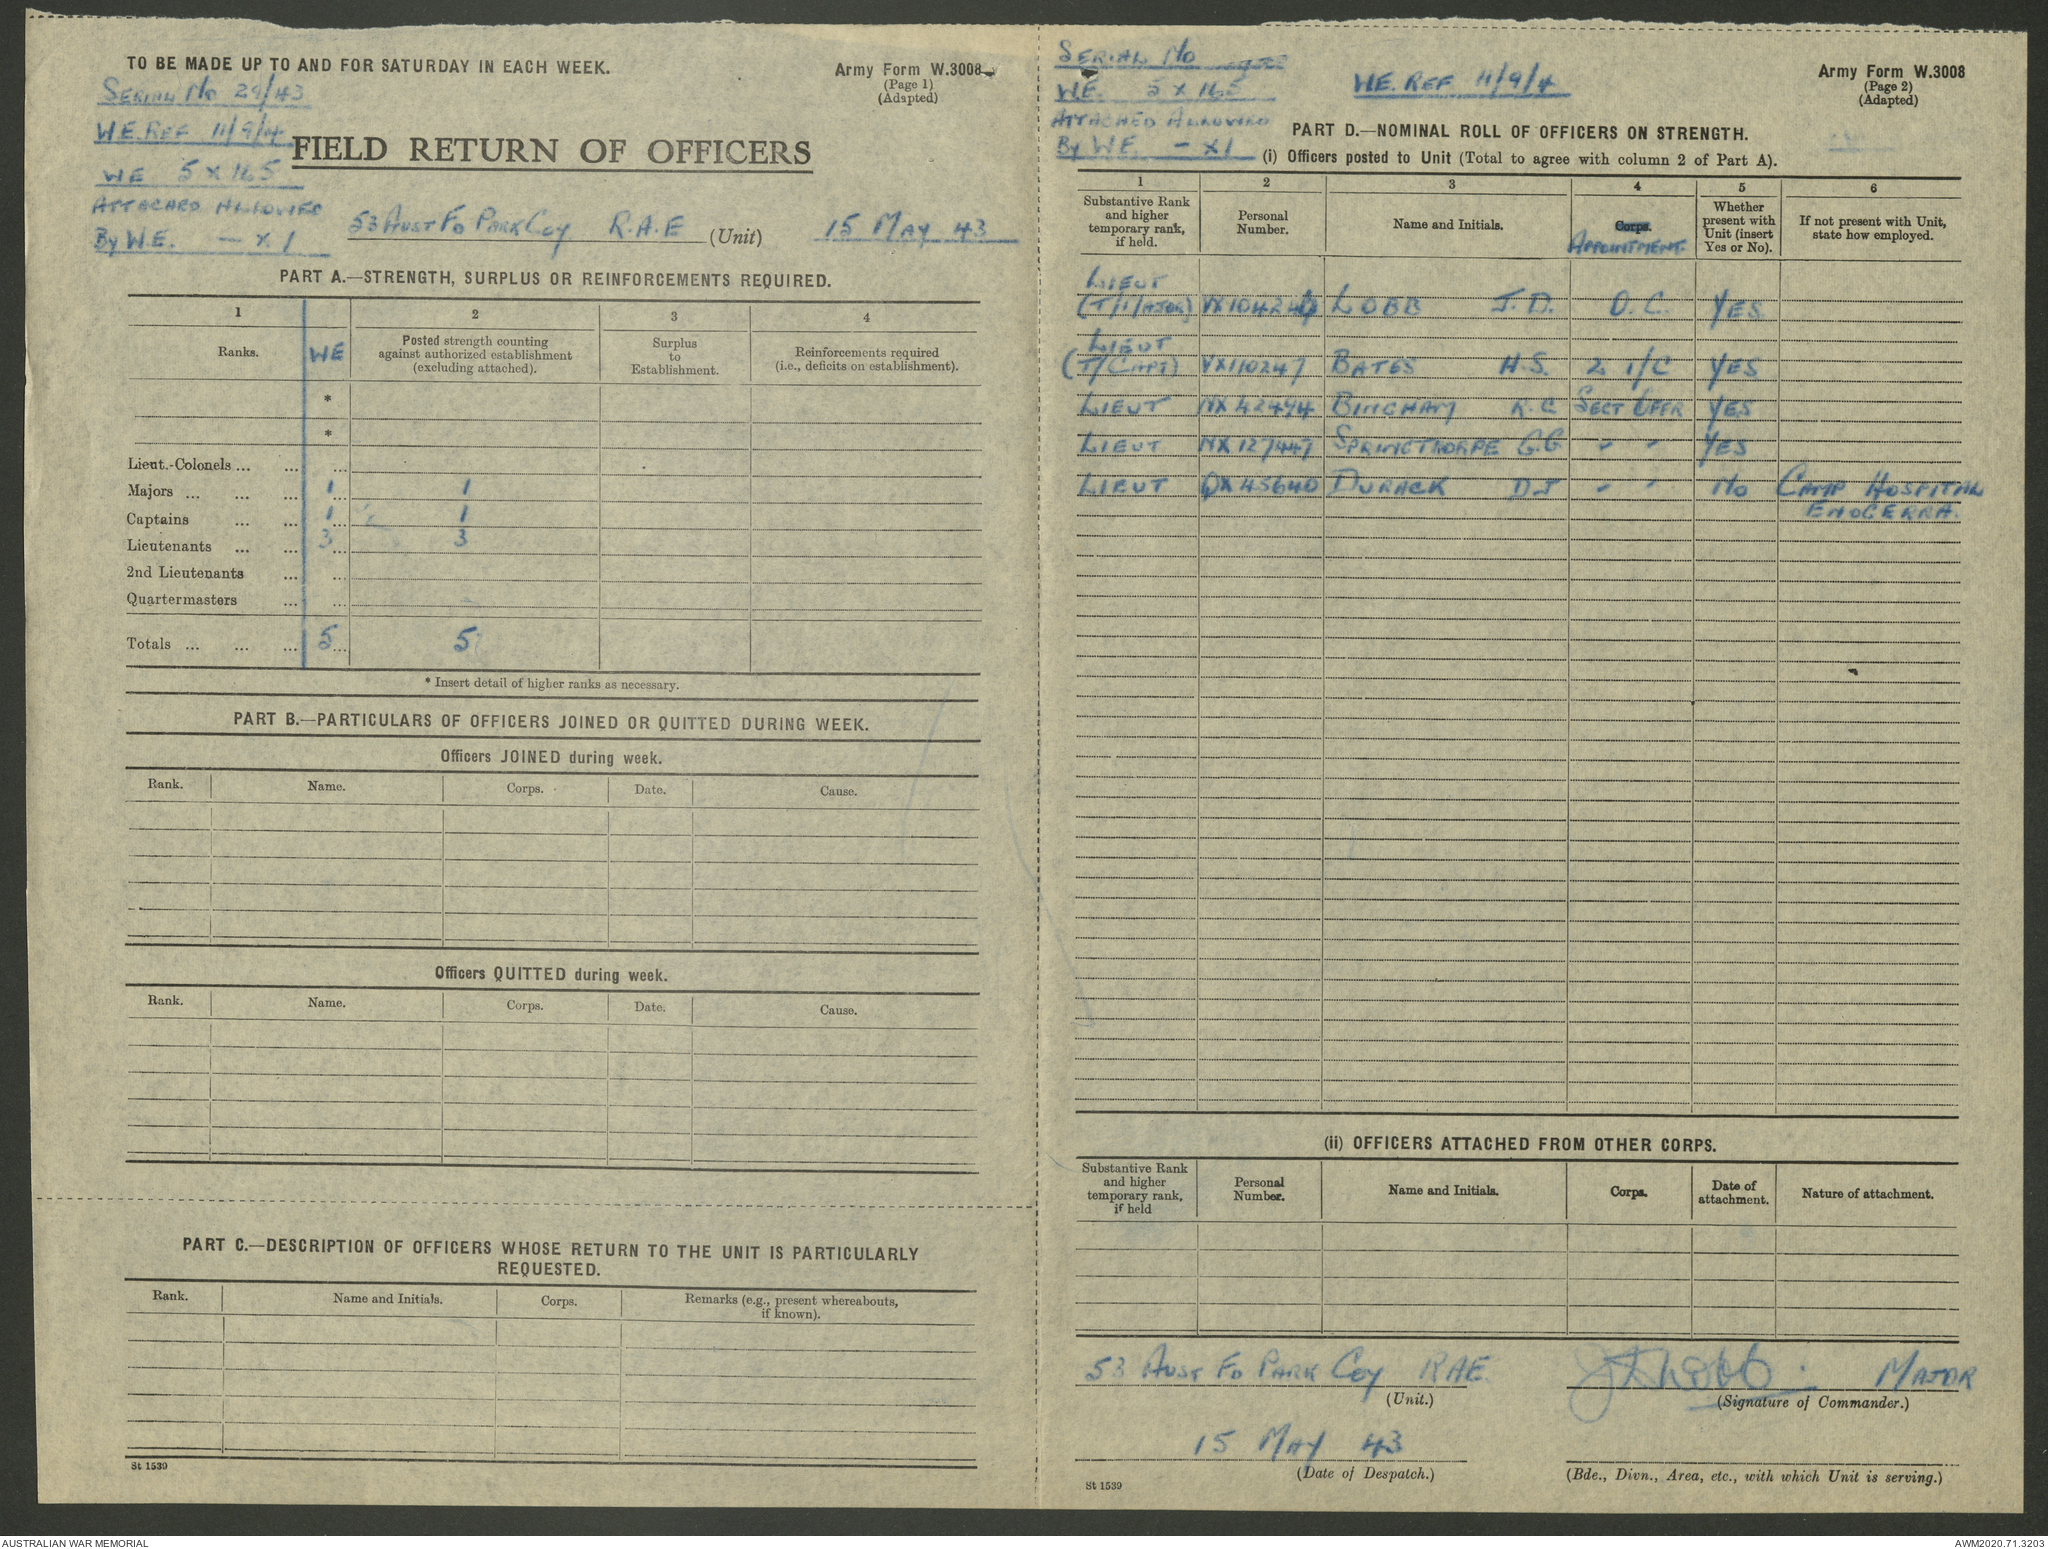 TO BE MADE UP TO AND FOR SATURDAY IN EACH WEEK.
Army Form W.3008
(Page 1)
(Adapted)
SERIAL No 29/43
W.E. REF 11/9/4
FIELD RETURN OF OFFICERS
WE 5 x 165
ATTACHED ALLOWED
By W.E. — x 1
53 AUST FD PARK COY R.A.E (Unit) 15 MAY 43
PART A.—STRENGTH, SURPLUS OR REINFORCEMENTS REQUIRED.
1 2 3 4
Ranks. WE Posted strength counting against authorized establishment (excluding attached). Surplus to Establishment. Reinforcements required (i.e., deficits on establishment).
*
*
Lieut.-Colonels ... ... ...
Majors ... ... ... 1 1
Captains ... ... 1 1
Lieutenants ... ... 3 3
2nd Lieutenants ... ...
Quartermasters ... ...
Totals ... ... ... 5 5
* Insert detail of higher ranks as necessary.
PART B.—PARTICULARS OF OFFICERS JOINED OR QUITTED DURING WEEK.
Officers JOINED during week.
Rank. Name. Corps. Date. Cause.
Officers QUITTED during week.
Rank. Name. Corps. Date. Cause.
PART C.—DESCRIPTION OF OFFICERS WHOSE RETURN TO THE UNIT IS PARTICULARLY
REQUESTED.
Rank. Name and Initials. Corps. Remarks (e.g., present whereabouts, if known).
St 1539
SERIAL No
WE. 5 x 165
ATTACHED ALLOWED
By WE — x 1
W.E. REF 11/9/4
Army Form W.3008
(Page 2)
(Adapted)
PART D.—NOMINAL ROLL OF OFFICERS ON STRENGTH.
(i) Officers posted to Unit (Total to agree with column 2 of Part A).
1 2 3 4 5 6
Substantive Rank and higher temporary rank, if held. Personal Number. Name and Initials. Corps. APPOINTMENT Whether present with Unit (insert Yes or No). If not present with Unit, state how employed.
LIEUT
(T/MAJOR) LOBB J.D. O.C. YES
LIEUT
(T/CAPT) VX110247 BATES H.S. 2 I/C YES
LIEUT NX 42494 BINGHAM R.C SECT OFFR YES
LIEUT NX 127447 SPRINGTHORPE G.G " " YES
LIEUT QX 45640 DURACK DJ " " No CAMP HOSPITAL
ENOGERRA.
(ii) OFFICERS ATTACHED FROM OTHER CORPS.
Substantive Rank and higher temporary rank, if held Personal Number. Name and Initials. Corps. Date of attachment. Nature of attachment.
53 AUST FD PARK COY RAE. JDLobb. MAJOR
(Unit.) (Signature of Commander.)
15 MAY 43
(Date of Despatch.) (Bde., Divn., Area, etc., with which Unit is serving.)
St 1539
AUSTRALIAN WAR MEMORIAL
AWM2020.71.3203